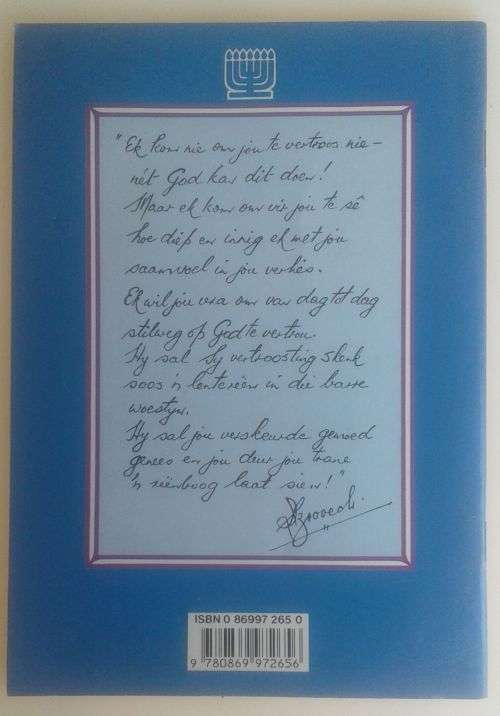 "Ek kom nie om jou te vertroos nie –
nét God kan dit doen!
Maar ek kom om vir jou te sê
hoe diep en innig ek met jou
saamvoel in jou verlies.
Ek wil jou vra om van dag tot dag
stilweg op God te vertrou.
Hy sal Sy vertroosting skenk
soos 'n lentereën in die barre
woestyn.
Hy sal jou verskeurde gemoed
genees en jou deur jou trane
'n reënboog laat sien!"
ISBN 0 86997 265 0
9 780869 972656